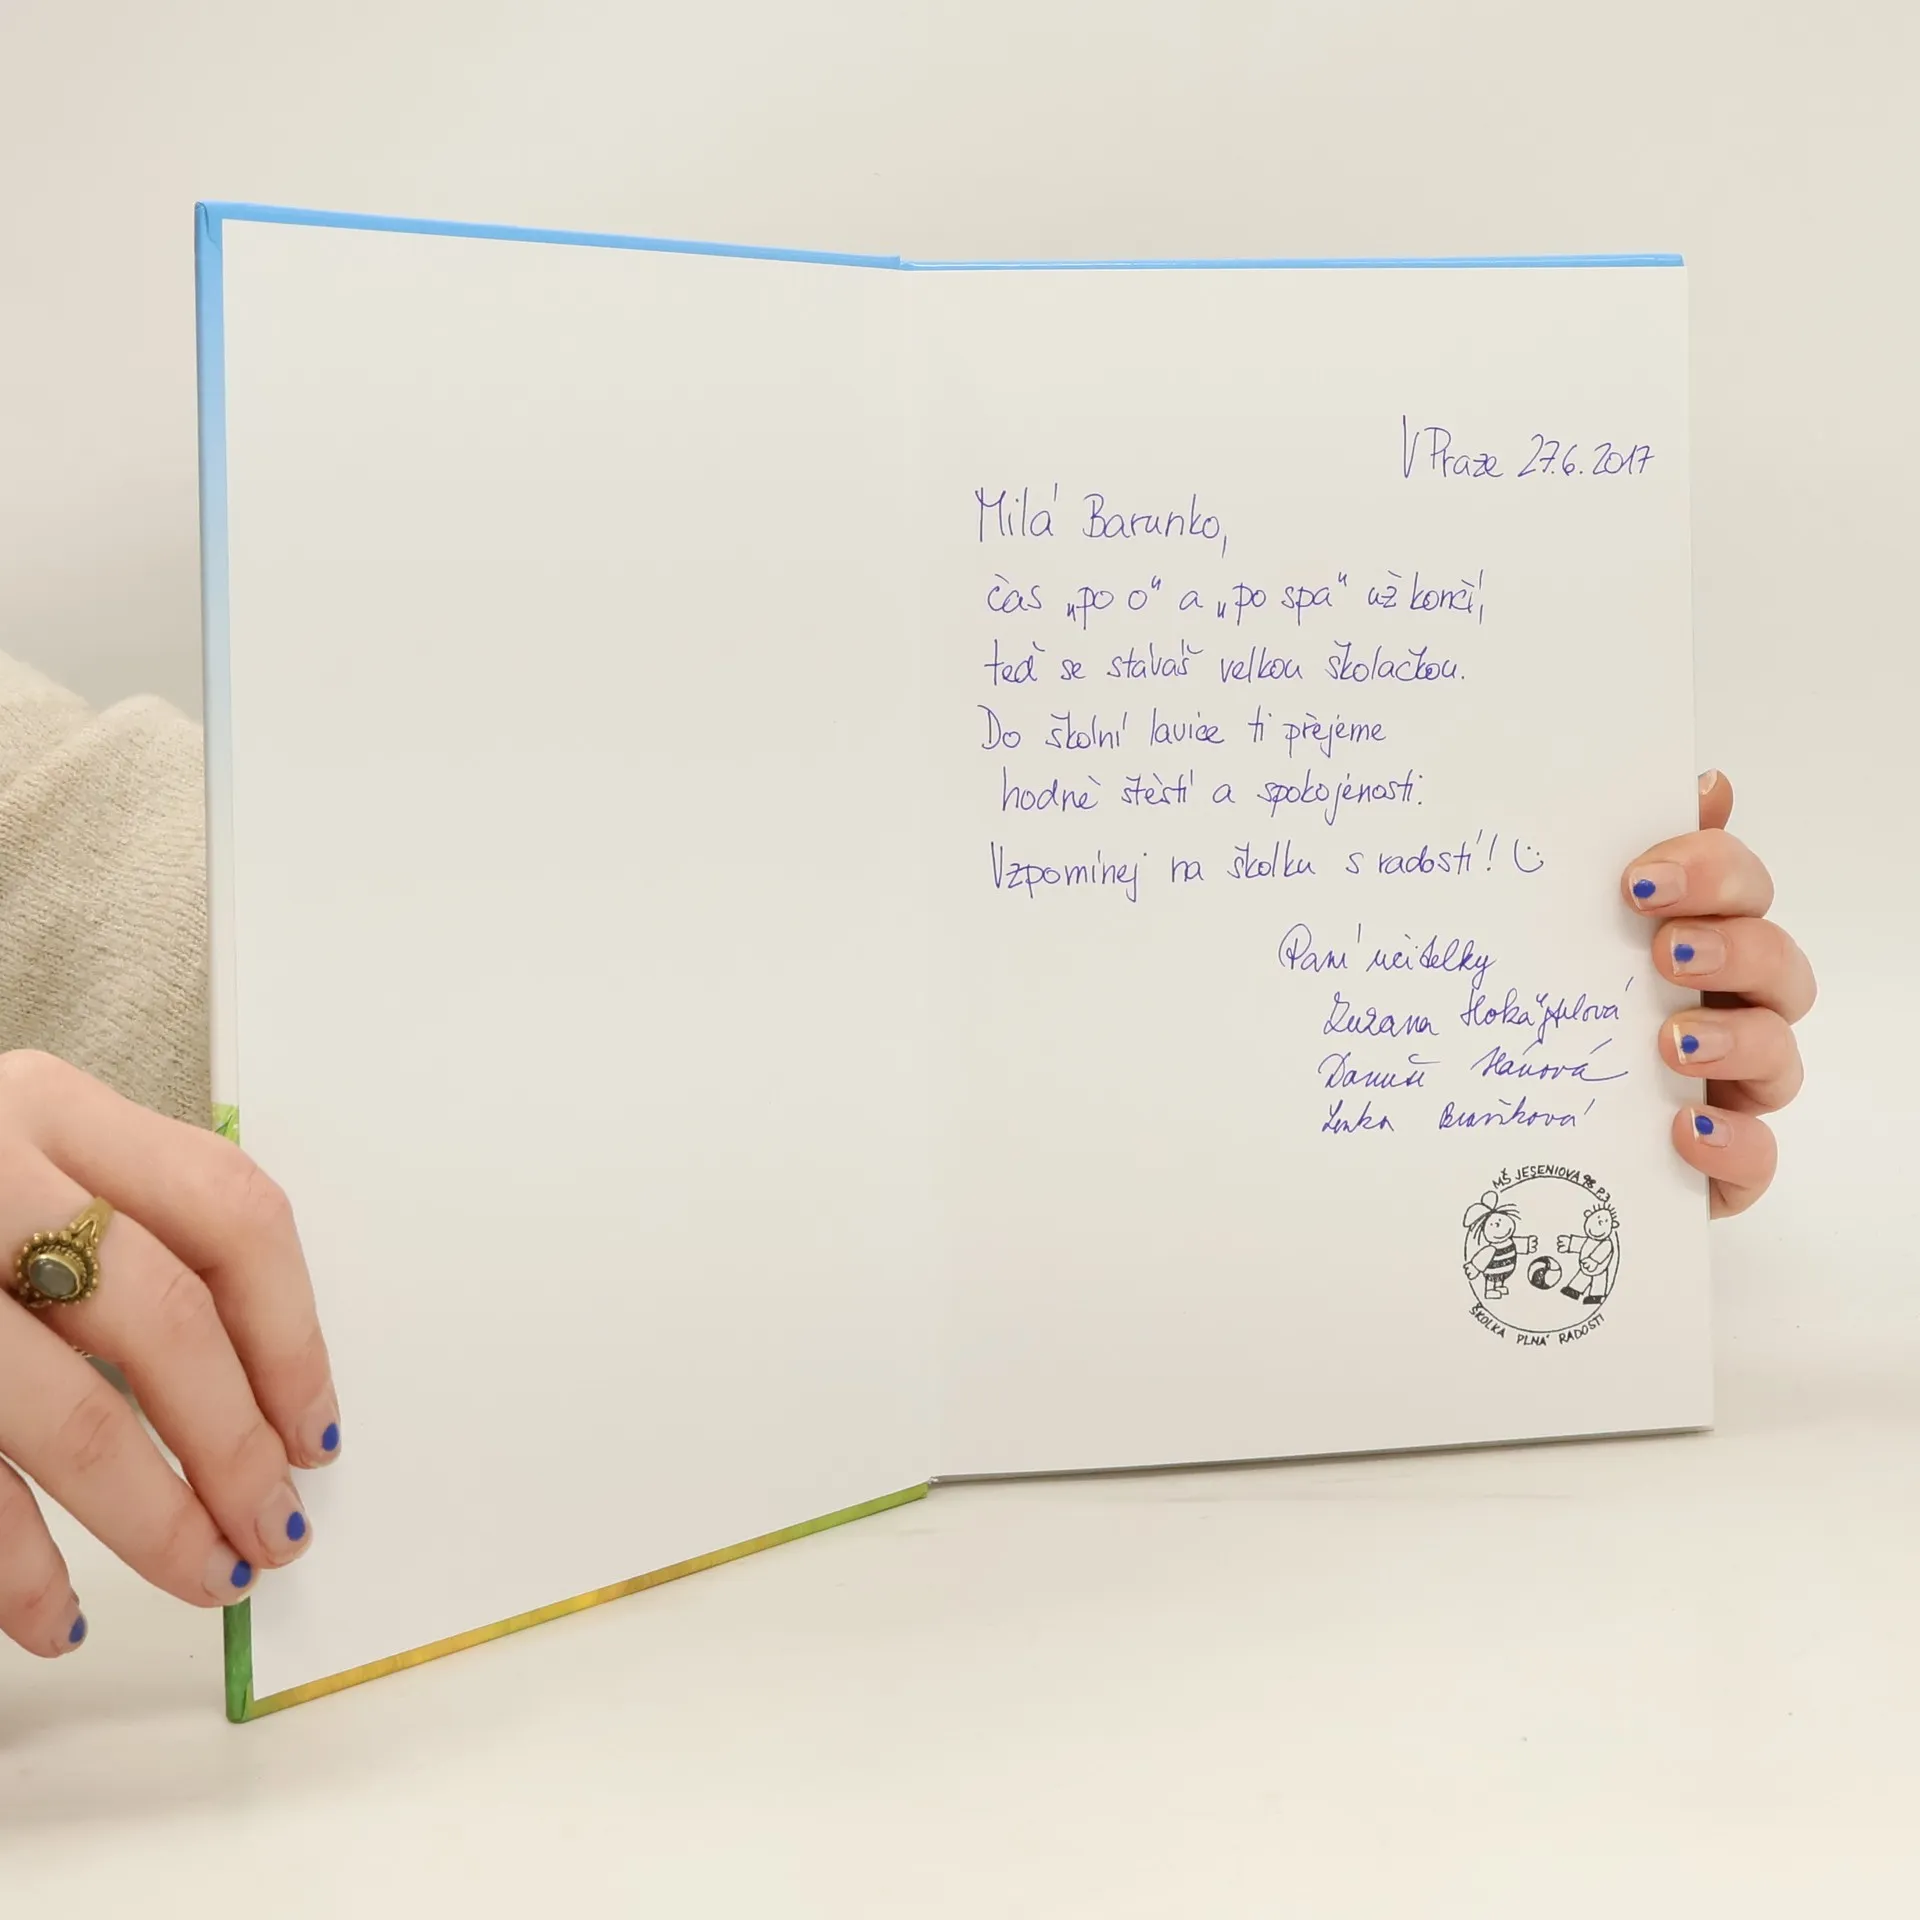 V Praze 27.6.2017
Milá Barunko,
čas „po o“ a „po spa“ už končí,
teď se stáváš velkou školačkou.
Do školní lavice ti přejeme
hodně štěstí a spokojenosti.
Vzpomínej na školku s radostí! :)
Paní učitelky
Zuzana
Danuše Hánová
Lenka
MŠ JESENIOVA 98 P3
ŠKOLKA PLNÁ RADOSTI